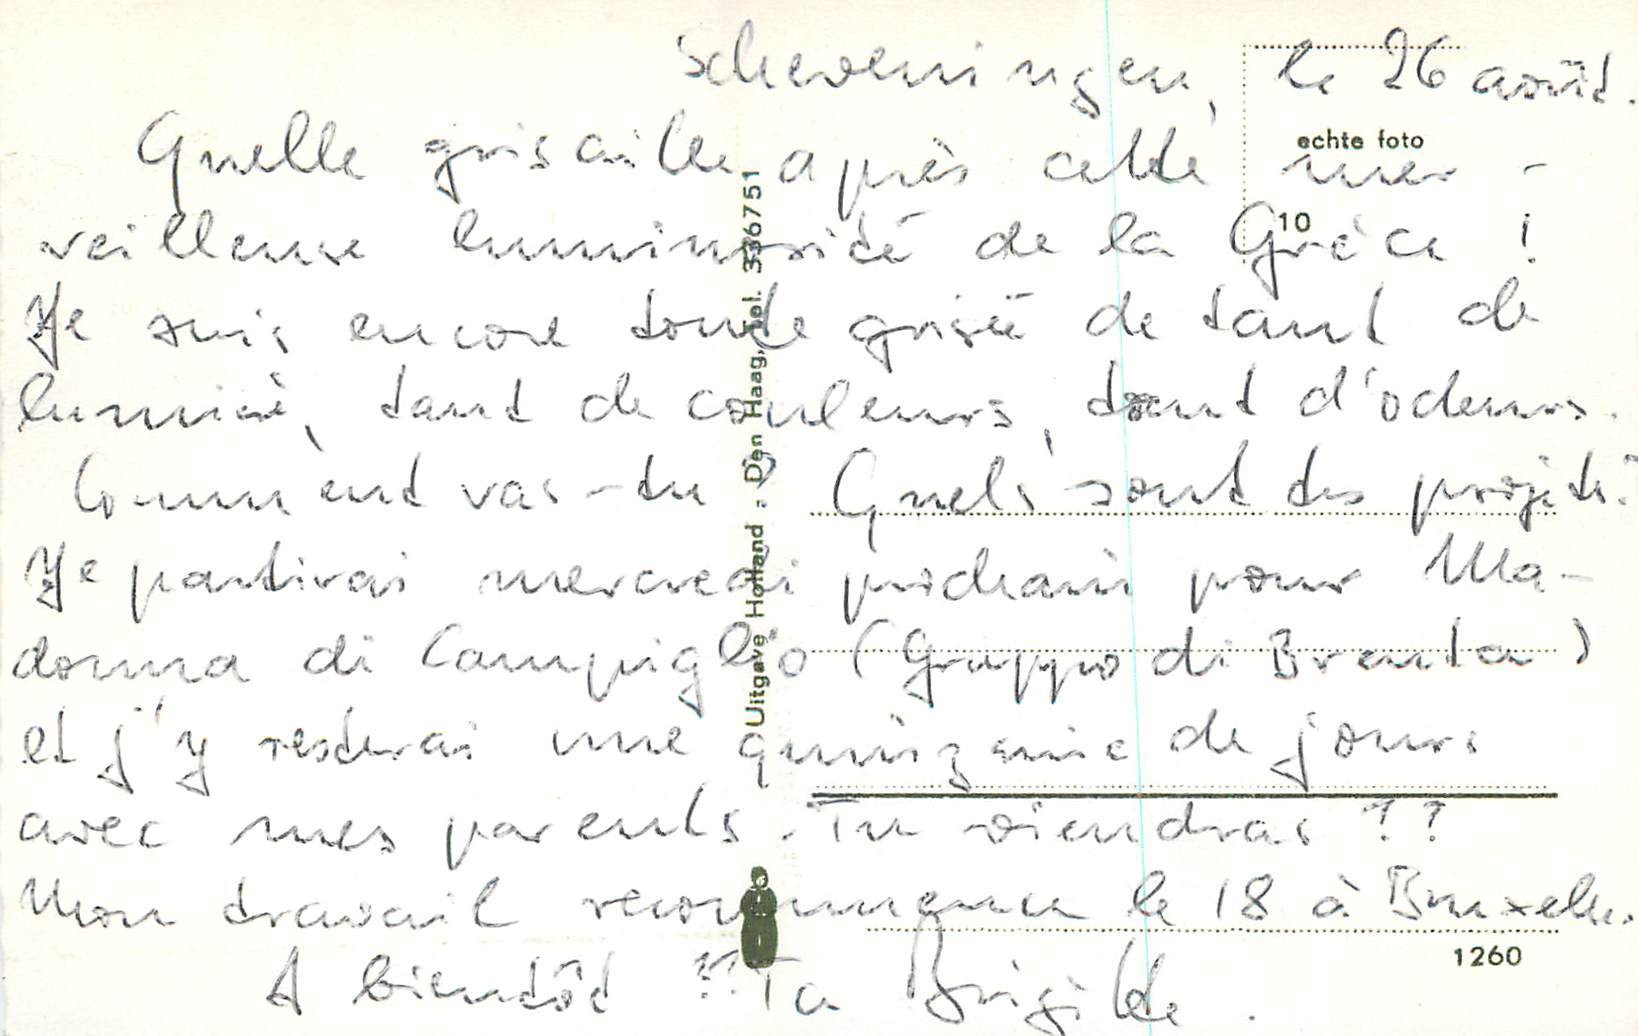 Scheveningen, le 26 août.
echte foto
Quelle grisaille après cette mer-
10
veilleuse luminosité de la Grèce !
Je suis encore toute grisée de tant de
lumière, tant de couleurs, tant d'odeurs.
Comment vas-tu ? Quels sont tes projets ?
Je partirai mercredi prochain pour Ma-
donna di Campiglio (Gruppo di Brenta)
et j'y resterai une quinzaine de jours
avec mes parents. Tu viendras ??
Mon travail recommence le 18 à Bruxelles.
A bientôt ?? Ta Brigitte.
Uitgave Holland - Den Haag, tel. 336751
1260